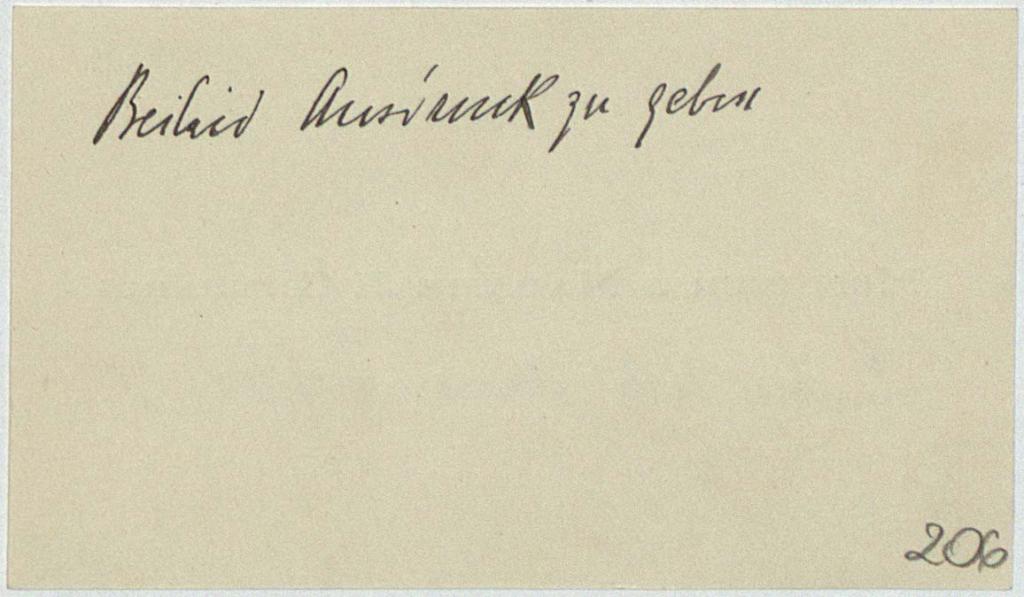 Beileid Ausdruck zu geben
206